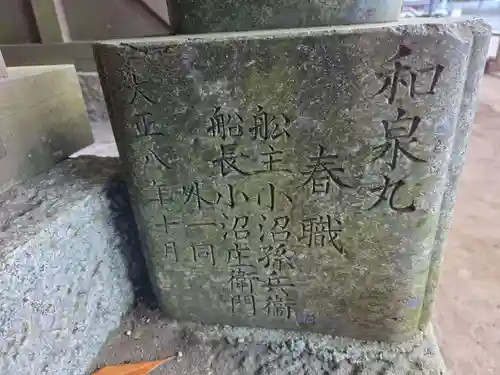 和泉丸
春職
舩主小沼孫兵衛
船長小沼庄衛門
外一同
大正八年十月